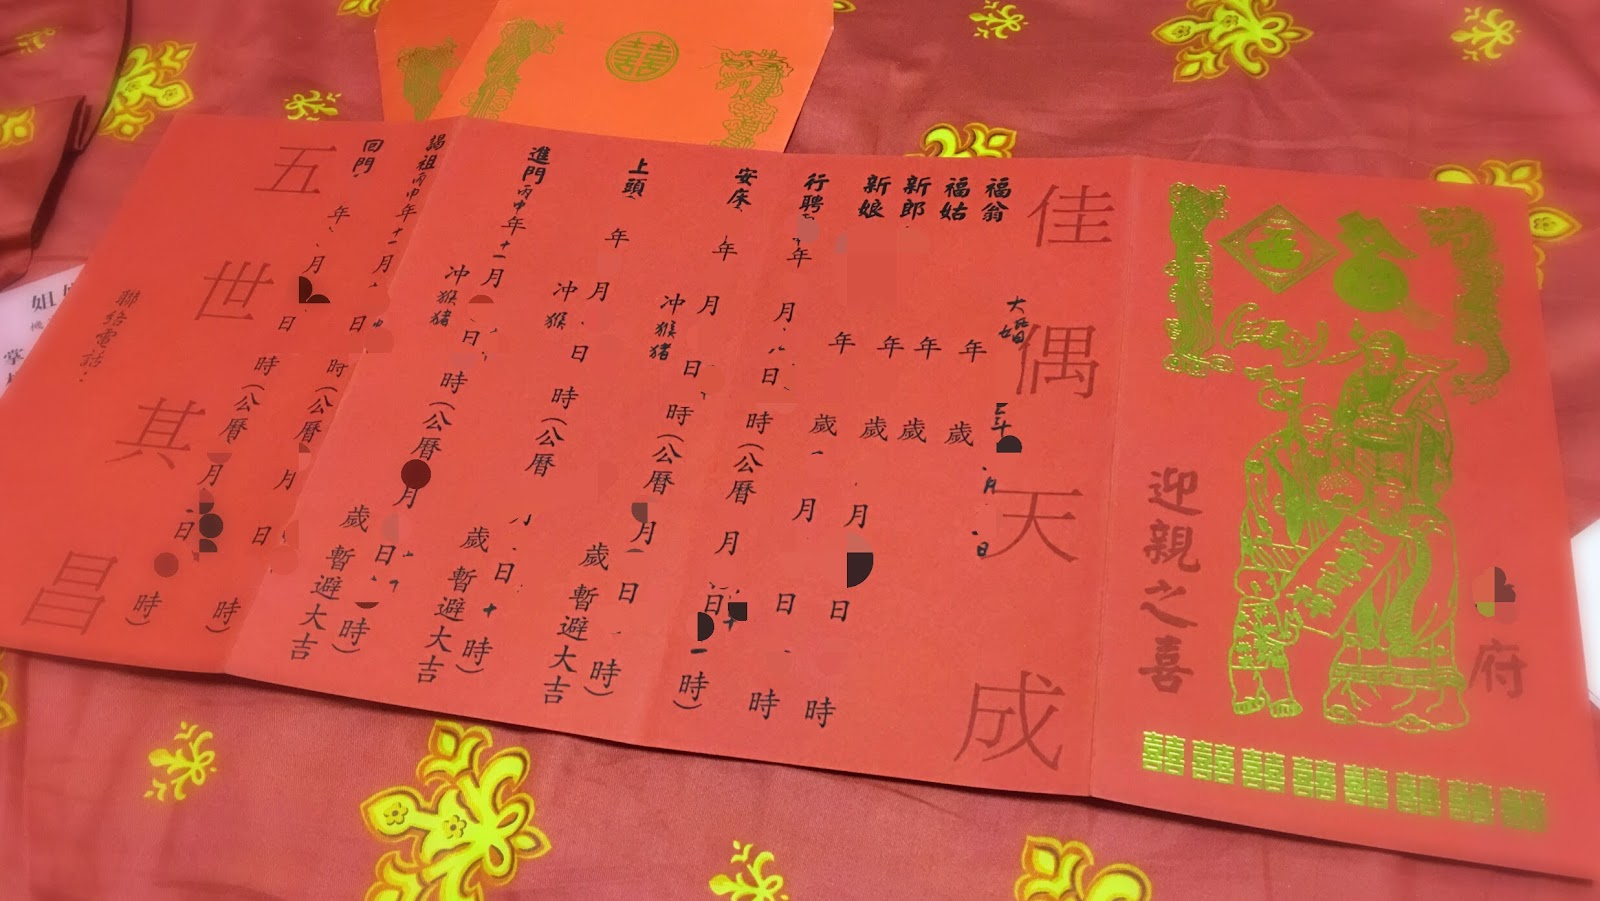 府
迎親之喜
囍囍囍囍囍囍囍囍
佳偶天成
大婚 年 月 日
福翁 年 歲
福姑 年 歲
新郎 年 歲 月 日 時
新娘 年 歲 月 日 時
行聘 年 月 八日 時(公曆 月 日 時)
安床 年 月 日 時(公曆 月 日 時)
冲猴猪 歲暫避大吉
上頭 年 月 日 時(公曆 月 日 十時)
冲猴 歲暫避大吉
進門丙申年十一月 日 時(公曆 月 日 時)
冲猴猪 歲暫避大吉
謁祖丙申年十一月 日 時(公曆 月 日 時)
回門 年 月 日 時(公曆 月 日 時)
五世其昌
聯絡電話: